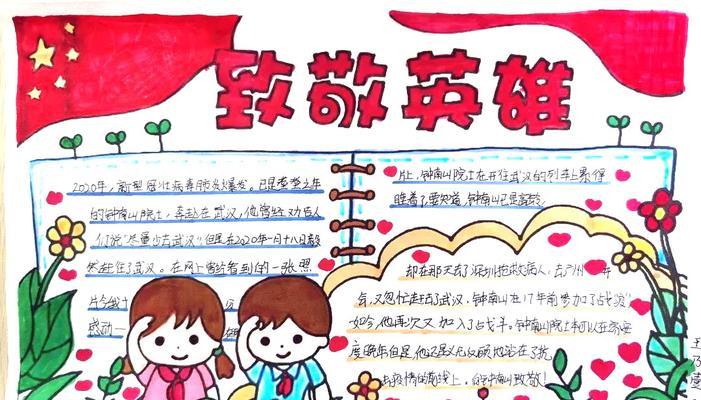 致敬英雄
2020年，新型冠状病毒肺炎爆发。已是耄耋之年
的钟南山院士，奔赴在武汉，他曾经劝告人
们说"尽量少去武汉"但是在2020年一月十八日毅
然赶往了武汉。在网上曾经看到的一张照
片
感动一
片上，钟南山院士在开往武汉的列车上累得
睡着了要知道，钟南山已是高龄
却在那天去了深圳抢救病人，去广州开
会，又急忙赶去了武汉。钟南山在17年前参加了战"役"
如今，他再次又加入了战斗。钟南山院士本可以在家安
度晚年但是，他还是义无反顾地站在了抗
击疫情的前线上。向钟南山致敬！